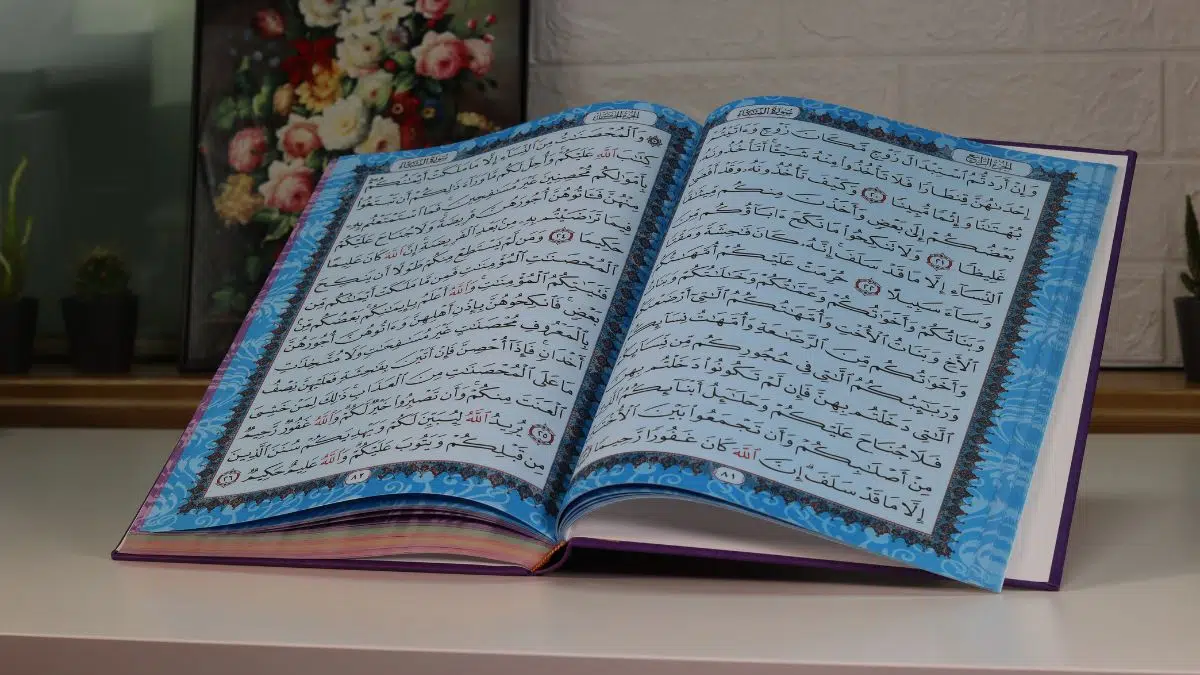 الجزء الرابع
سورة النساء
وَإِنْ أَرَدتُّمُ ٱسْتِبْدَالَ زَوْجٍ مَّكَانَ زَوْجٍ وَءَاتَيْتُمْ
إِحْدَىٰهُنَّ قِنطَارًا فَلَا تَأْخُذُوا۟ مِنْهُ شَيْـًٔا أَتَأْخُذُونَهُۥ
بُهْتَـٰنًا وَإِثْمًا مُّبِينًا ٢٠ وَكَيْفَ تَأْخُذُونَهُۥ وَقَدْ أَفْضَىٰ
بَعْضُكُمْ إِلَىٰ بَعْضٍ وَأَخَذْنَ مِنكُم مِّيثَـٰقًا
غَلِيظًا ٢١ وَلَا تَنكِحُوا۟ مَا نَكَحَ ءَابَآؤُكُم مِّنَ
ٱلنِّسَآءِ إِلَّا مَا قَدْ سَلَفَ إِنَّهُۥ كَانَ فَـٰحِشَةً وَمَقْتًا
وَسَآءَ سَبِيلًا ٢٢ حُرِّمَتْ عَلَيْكُمْ أُمَّهَـٰتُكُمْ
وَبَنَاتُكُمْ وَأَخَوَٰتُكُمْ وَعَمَّـٰتُكُمْ وَخَـٰلَـٰتُكُمْ وَبَنَاتُ
ٱلْأَخِ وَبَنَاتُ ٱلْأُخْتِ وَأُمَّهَـٰتُكُمُ ٱلَّـٰتِىٓ أَرْضَعْنَكُمْ
وَأَخَوَٰتُكُم مِّنَ ٱلرَّضَـٰعَةِ وَأُمَّهَـٰتُ نِسَآئِكُمْ
وَرَبَـٰٓئِبُكُمُ ٱلَّـٰتِى فِى حُجُورِكُم مِّن نِّسَآئِكُمُ
ٱلَّـٰتِى دَخَلْتُم بِهِنَّ فَإِن لَّمْ تَكُونُوا۟ دَخَلْتُم بِهِنَّ
فَلَا جُنَاحَ عَلَيْكُمْ وَحَلَـٰٓئِلُ أَبْنَآئِكُمُ
مِنْ أَصْلَـٰبِكُمْ وَأَن تَجْمَعُوا۟ بَيْنَ
إِلَّا مَا قَدْ سَلَفَ إِنَّ ٱللَّهَ كَانَ غَفُورًا رَّحِيمًا
٨١
سورة النساء
وَٱلْمُحْصَنَـٰتُ مِنَ ٱلنِّسَآءِ إِلَّا مَا مَلَكَتْ أَيْمَـٰنُكُمْ
كِتَـٰبَ ٱللَّهِ عَلَيْكُمْ وَأُحِلَّ لَكُم مَّا وَرَآءَ ذَٰلِكُمْ أَن تَبْتَغُوا۟
بِأَمْوَٰلِكُم مُّحْصِنِينَ غَيْرَ مُسَـٰفِحِينَ فَمَا ٱسْتَمْتَعْتُم بِهِۦ
مِنْهُنَّ فَـَٔاتُوهُنَّ أُجُورَهُنَّ فَرِيضَةً وَلَا جُنَاحَ عَلَيْكُمْ
فِيمَا تَرَٰضَيْتُم بِهِۦ مِنۢ بَعْدِ ٱلْفَرِيضَةِ إِنَّ ٱللَّهَ كَانَ عَلِيمًا
حَكِيمًا ٢٤ وَمَن لَّمْ يَسْتَطِعْ مِنكُمْ طَوْلًا أَن يَنكِحَ
ٱلْمُحْصَنَـٰتِ ٱلْمُؤْمِنَـٰتِ فَمِن مَّا مَلَكَتْ أَيْمَـٰنُكُم مِّن
فَتَيَـٰتِكُمُ ٱلْمُؤْمِنَـٰتِ وَٱللَّهُ أَعْلَمُ بِإِيمَـٰنِكُم بَعْضُكُم مِّنۢ
بَعْضٍ فَٱنكِحُوهُنَّ بِإِذْنِ أَهْلِهِنَّ وَءَاتُوهُنَّ أُجُورَهُنَّ
بِٱلْمَعْرُوفِ مُحْصَنَـٰتٍ غَيْرَ مُسَـٰفِحَـٰتٍ وَلَا مُتَّخِذَٰتِ
أَخْدَانٍ فَإِذَآ أُحْصِنَّ فَإِنْ أَتَيْنَ بِفَـٰحِشَةٍ فَعَلَيْهِنَّ نِصْفُ
مَا عَلَى ٱلْمُحْصَنَـٰتِ مِنَ ٱلْعَذَابِ ذَٰلِكَ لِمَنْ خَشِىَ
ٱلْعَنَتَ مِنكُمْ وَأَن تَصْبِرُوا۟ خَيْرٌ لَّكُمْ وَٱللَّهُ غَفُورٌ رَّحِيمٌ
٢٥ يُرِيدُ ٱللَّهُ لِيُبَيِّنَ لَكُمْ وَيَهْدِيَكُمْ سُنَنَ ٱلَّذِينَ
مِن قَبْلِكُمْ وَيَتُوبَ عَلَيْكُمْ وَٱللَّهُ عَلِيمٌ حَكِيمٌ ٢٦
٨٢